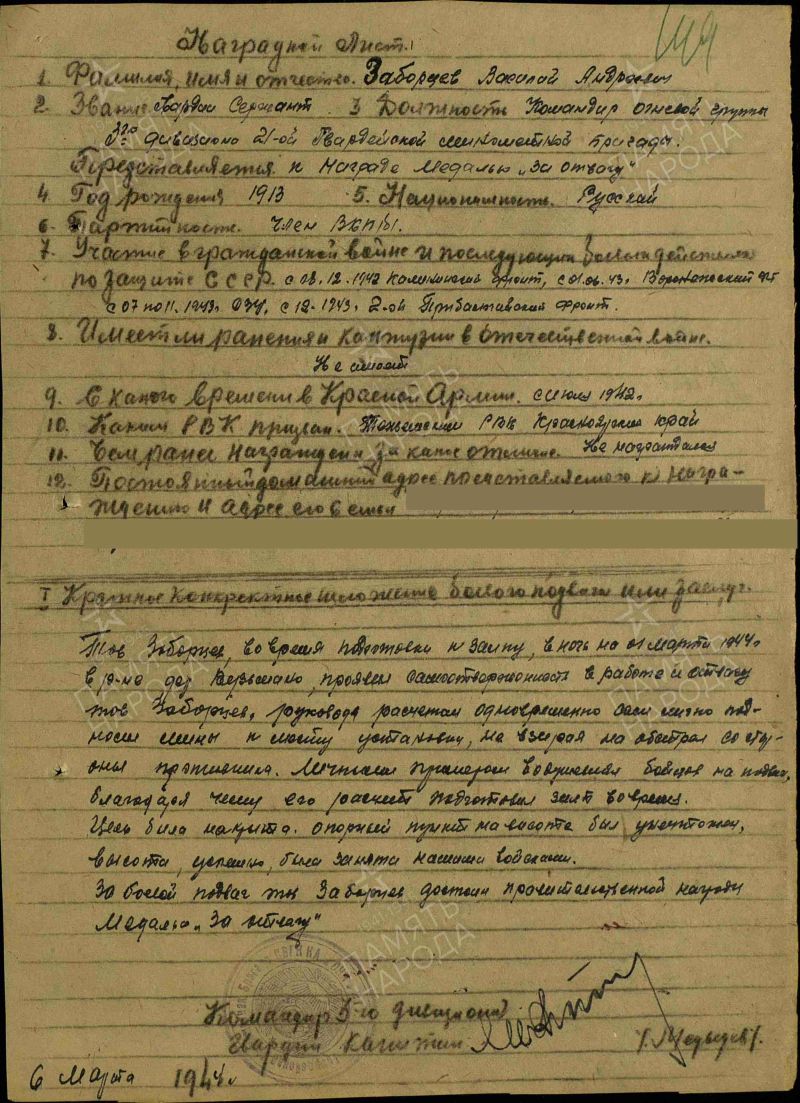 Наградной Лист.
1. Фамилия, имя и отчество. Заборцев Василий Андреевич
2. Звание гвардии Сержант 3 Должность Командир огневой группы
дивизиона 21-ой Гвардейской минометной бригады.
Представляется к Награде Медалью „За отвагу"
4 Год рождения 1913 5. Национальность. Русский
6- Партийность. член ВКП/б/.
7. Участие в гражданской войне и последующих боевых действиях
по защите СССР. с 08.12.1942 Калининский фронт, с 01.06.43. Воронежский
с 07 по 11.1943. с 12-1943. 2-ой Прибалтийский Фронт.
8. Имеет ли ранения и контузии в отечественной войне.
Не имеет
9. С какого времени в Красной Армии. с июля 1942г
10. Каким РВК призван. РВК Красноярский край
11. Чем ранее награжден за какие отличие Не награждался
12. Постоянный домашний адрес представляемого к награ-
ждению и адрес его семьи
I Краткое конкретное изложение боевого подвига или заслуг.
Тов Заборцев, во время подготовки к залпу, в ночь на 01 марта 1944г
в р-не дер проявил самоотверженность в работе и отвагу
тов Заборцев, руководя расчетом одновременно сам лично под-
носил мины к месту установки, не взирая на обстрел со сто-
роны противника. Личным примером воодушевлял бойцов на подвиг,
благодаря чему его расчет подготовил залп вовремя.
Цель была накрыта. опорный пункт на высоте был уничтожен,
высота, успешно, была занята нашими войсками.
За боевой подвиг тов Заборцев достоин правительственной награды
Медалью „За отвагу"
Командир 5-го дивизиона
Гвардии Капитан /Медведев/.
6 Марта 1944г
ПАМЯТЬ НАРОДА